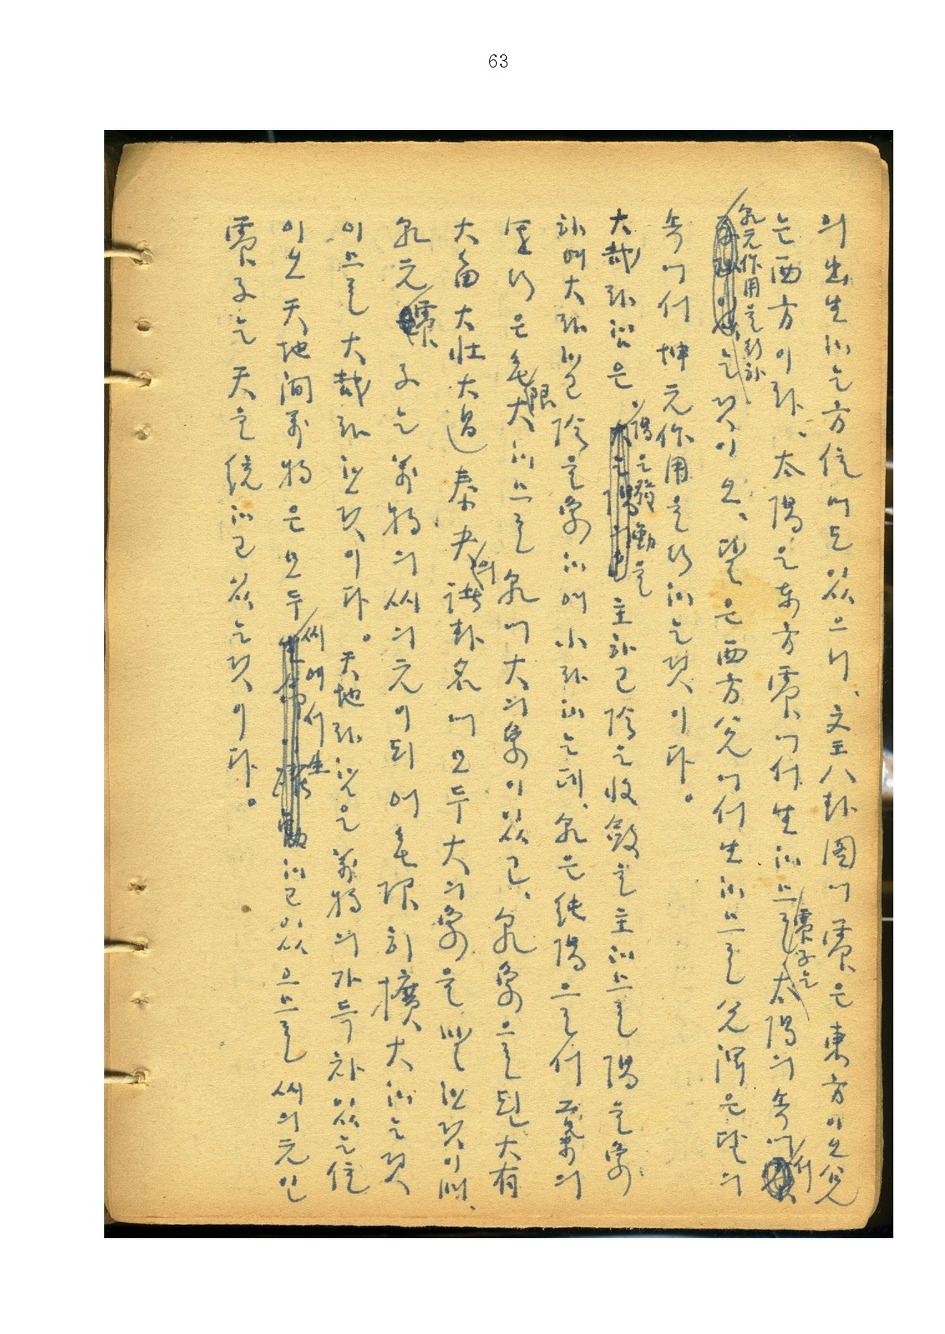 63
의 出生하는 方位에도 있으니、文王八卦圖에 震은 東方이오 兌
는 西方이라、太陽은 東方 震에서 生하므로 震子는 太陽의 속에서
乾元作用을 하는 것이오、달은 西方 兌에서 生하므로 兌澤은 달의
속에서 坤元作用을 行하는 것이다。
大哉라 함은 陽은 發動을 主하고 陰은 收斂을 主하므로 陽을 象
하여 大라 하고 陰을 象하여 小라 하는데、乾은 純陽으로서 의
運行은 无限大하므로 乾에 大의 象이 있고、乾象으로 된 大有
大畜 大壯 大過 泰 夬의 諸卦名에 모두 大의 象을 말한 것이며、
乾元 震子는 萬物의 씨의 元이 되어 无限히 擴大하는 것
이므로 大哉라 한 것이다。天地라 함은 萬物의 가득 차 있는 位
이오 天地間 萬物은 모두 씨에서 生하고 있으므로 씨의 元인
震子는 天을 統하고 있는 것이다。